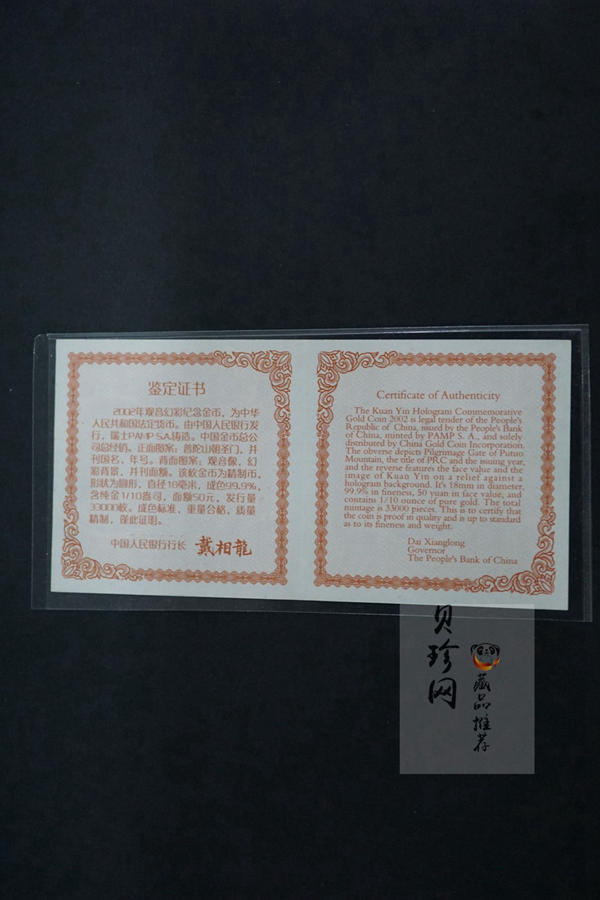 鉴定证书
2002年观音幻彩纪念金币，为中华
人民共和国法定货币。由中国人民银行发
行，瑞士PAMP S.A.铸造。中国金币总公
司总经销。正面图案：普陀山朝圣门，并
刊国名、年号。背面图案：观音像，幻
彩背景，并刊面额。该枚金币为精制币，
形状为圆形，直径18毫米，成色99.9%，
含纯金1/10盎司，面额50元，发行量
33000枚。成色标准，重量合格，质量
精制，谨此证明。
中国人民银行行长 戴相龍
Certificate of Authenticity
The Kuan Yin Hologram Commemorative
Gold Coin 2002 is legal tender of the People's
Republic of China, issued by the People's Bank
of China, minted by PAMP S. A., and solely
distributed by China Gold Coin Incorporation.
The obverse depicts Pilgrimage Gate of Putuo
Mountain, the title of PRC and the issuing year,
and the reverse features the face value and the
image of Kuan Yin on a relief against a
hologram background. It's 18mm in diameter,
99.9% in fineness, 50 yuan in face value, and
contains 1/10 ounce of pure gold. The total
mintage is 33000 pieces. This is to certify that
the coin is proof in quality and is up to standard
as to its fineness and weight.
Dai Xianglong
Governor
The People's Bank of China
贝珍网
藏品推荐